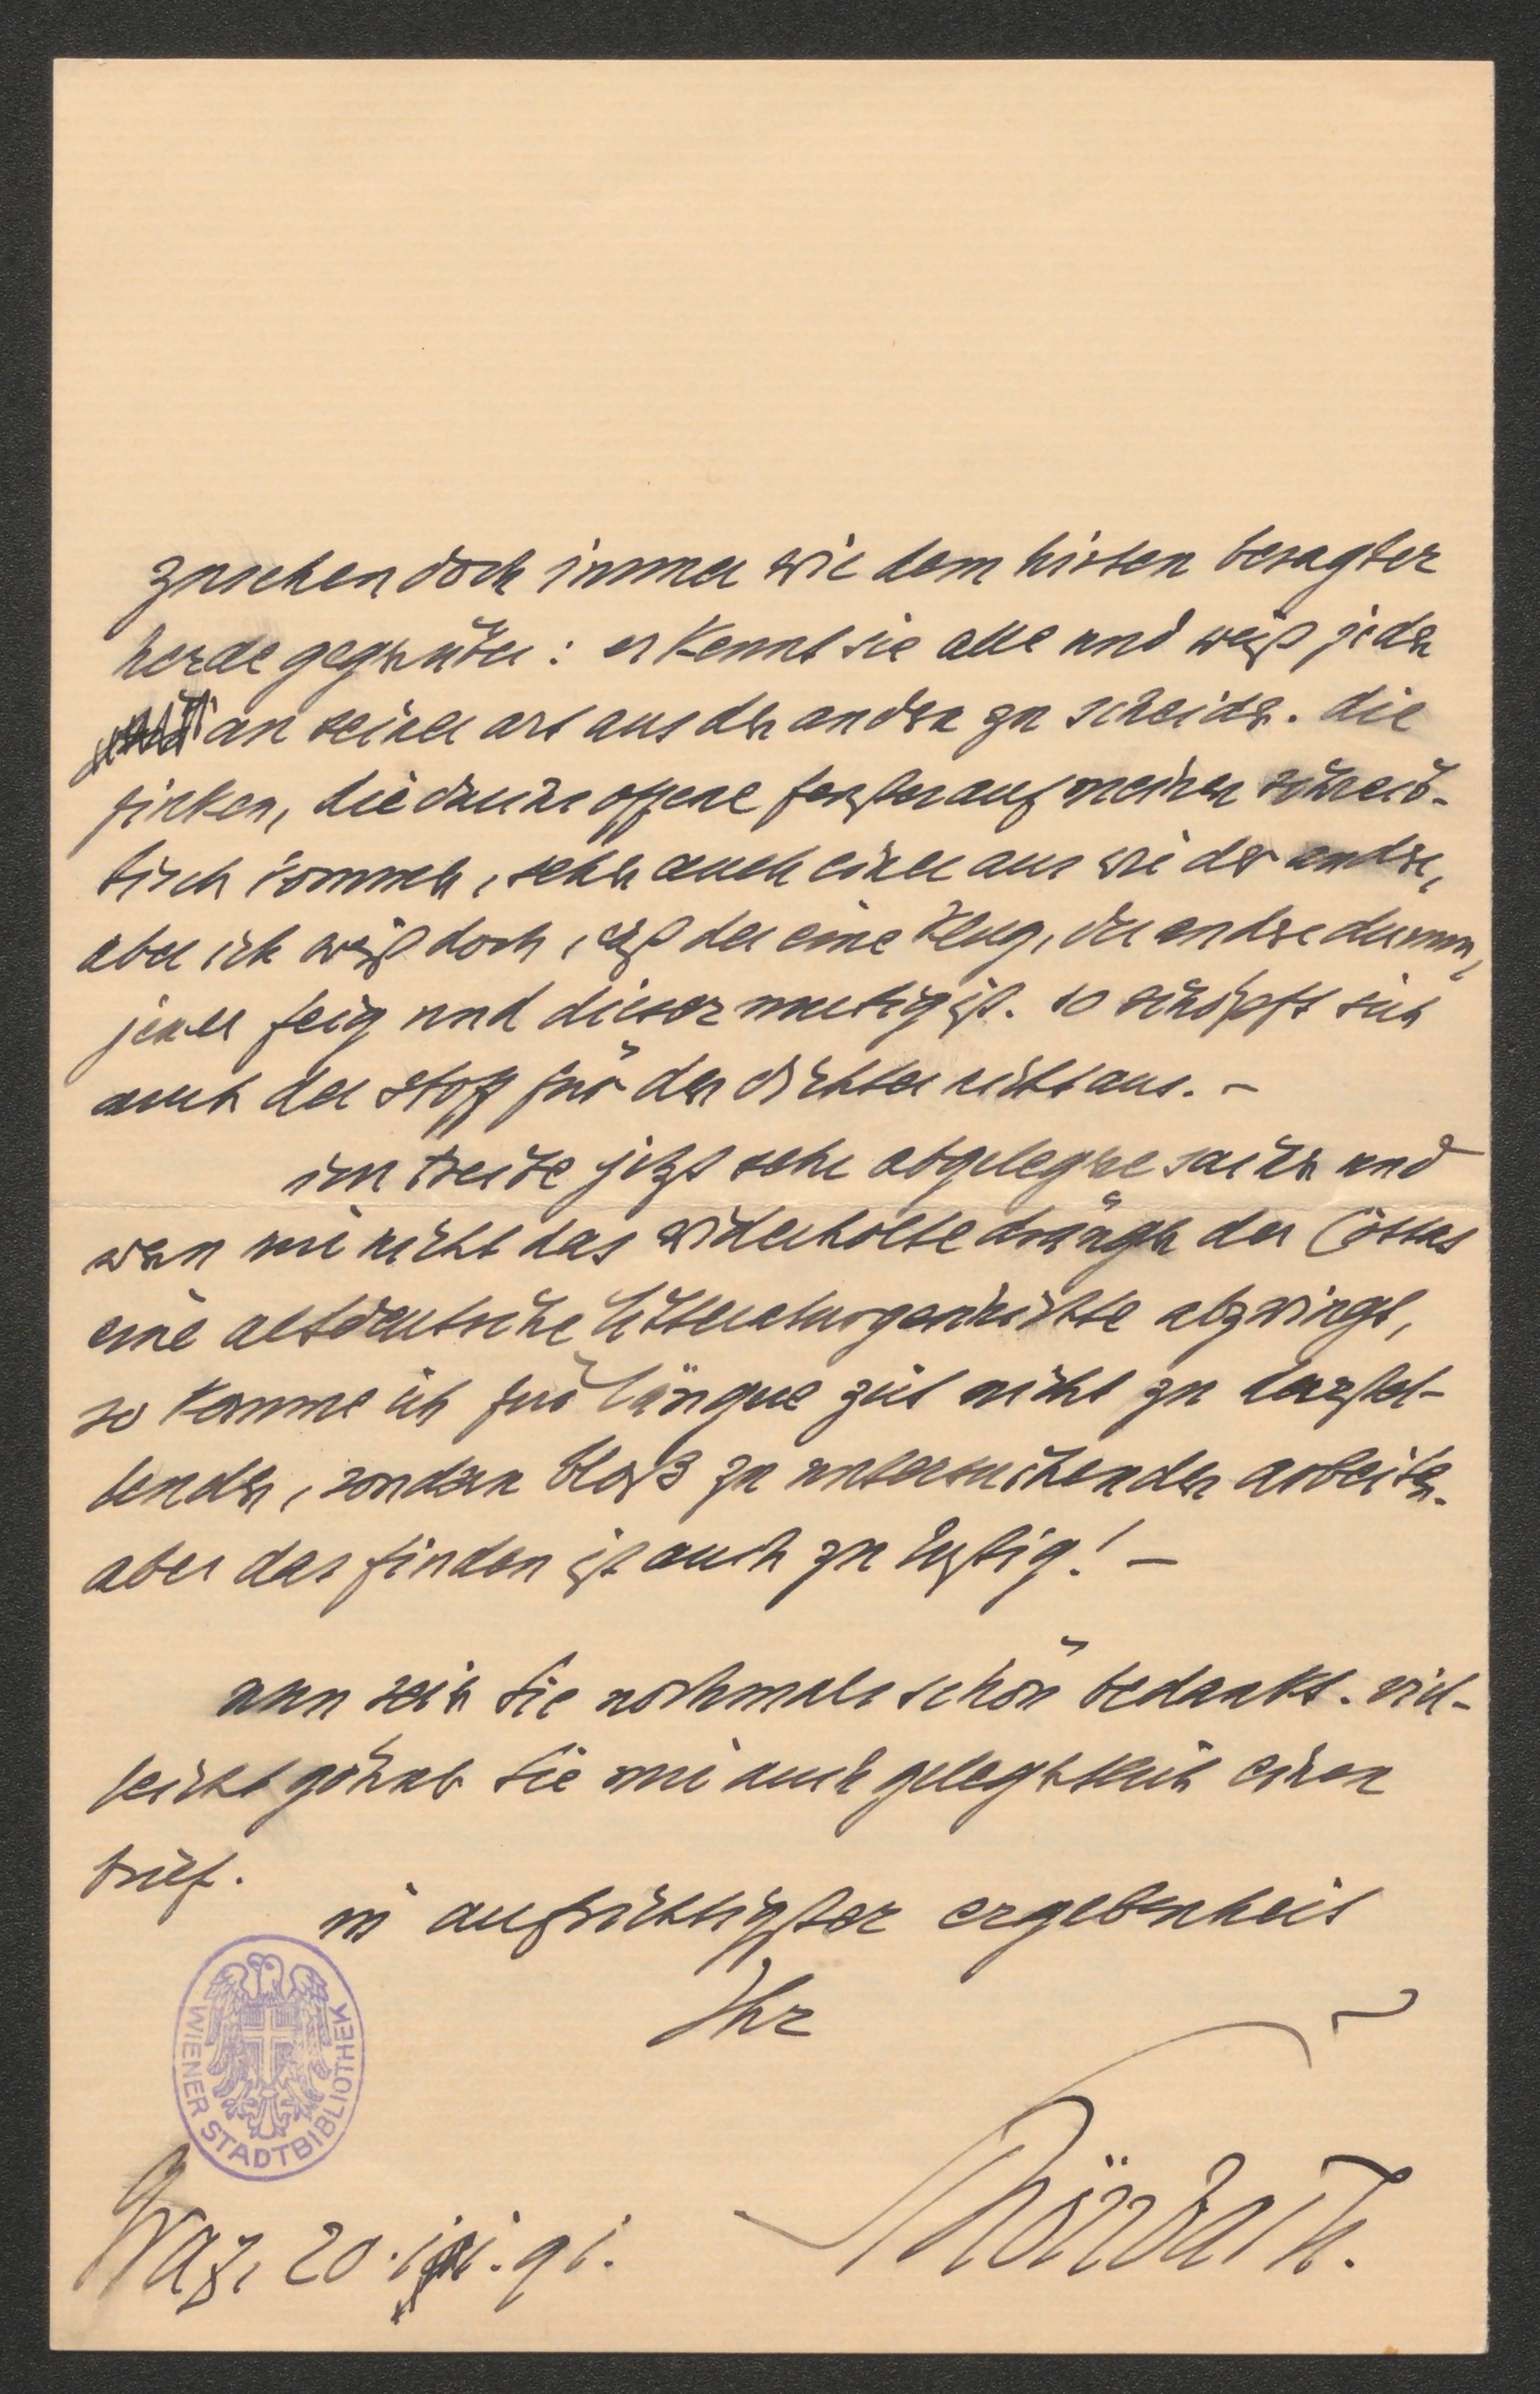 zusehen doch immer wie dem hirten besagter
herde gegenüber: er kennt sie alle und weiß jeden
an seiner art aus den andern zu scheiden. die
finken, die durchs offene fenster auf meinen schreib-
tisch kommen, sehen auch einer aus wie der andre,
aber ich weiß doch, daß der eine klug, der andre dumm,
jener feig und dieser mutig ist. so schöpft sich
auch der stoff für den dichter nicht aus. –
ich treibe jetzt sehr abgelegne sachen und
wenn mir nicht das widerholte drängen der Cottas
eine altdeutsche litteraturgeschichte abzwingt,
so komme ich für längere zeit nicht zu darstel-
lenden, sondern bloß zu untersuchenden arbeiten.
aber das finden ist auch zu lustig! –
nun sein Sie nochmals schön bedankt. viel-
leicht gönnen Sie mir auch gelegentlich einen
brief.
in aufrichtigster ergebenheit
Ihr
Schönbach.
Graz, 20. 91.
WIENER STADTBIBLIOTHEK